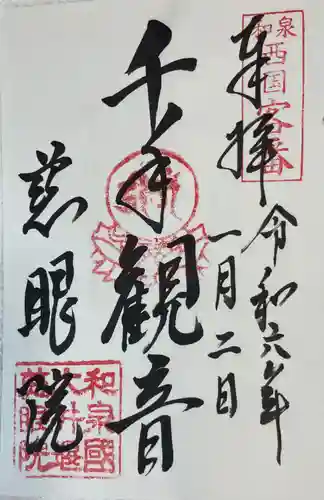 奉拝
令和六年
一月二日
千手観音
慈眼院
和泉
西国客番
和泉國
慈眼院